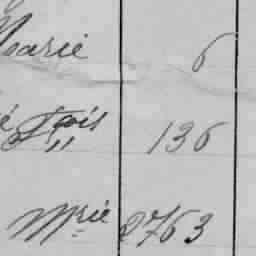 Marie 6
é Fçois 136
"
Mrie 2763